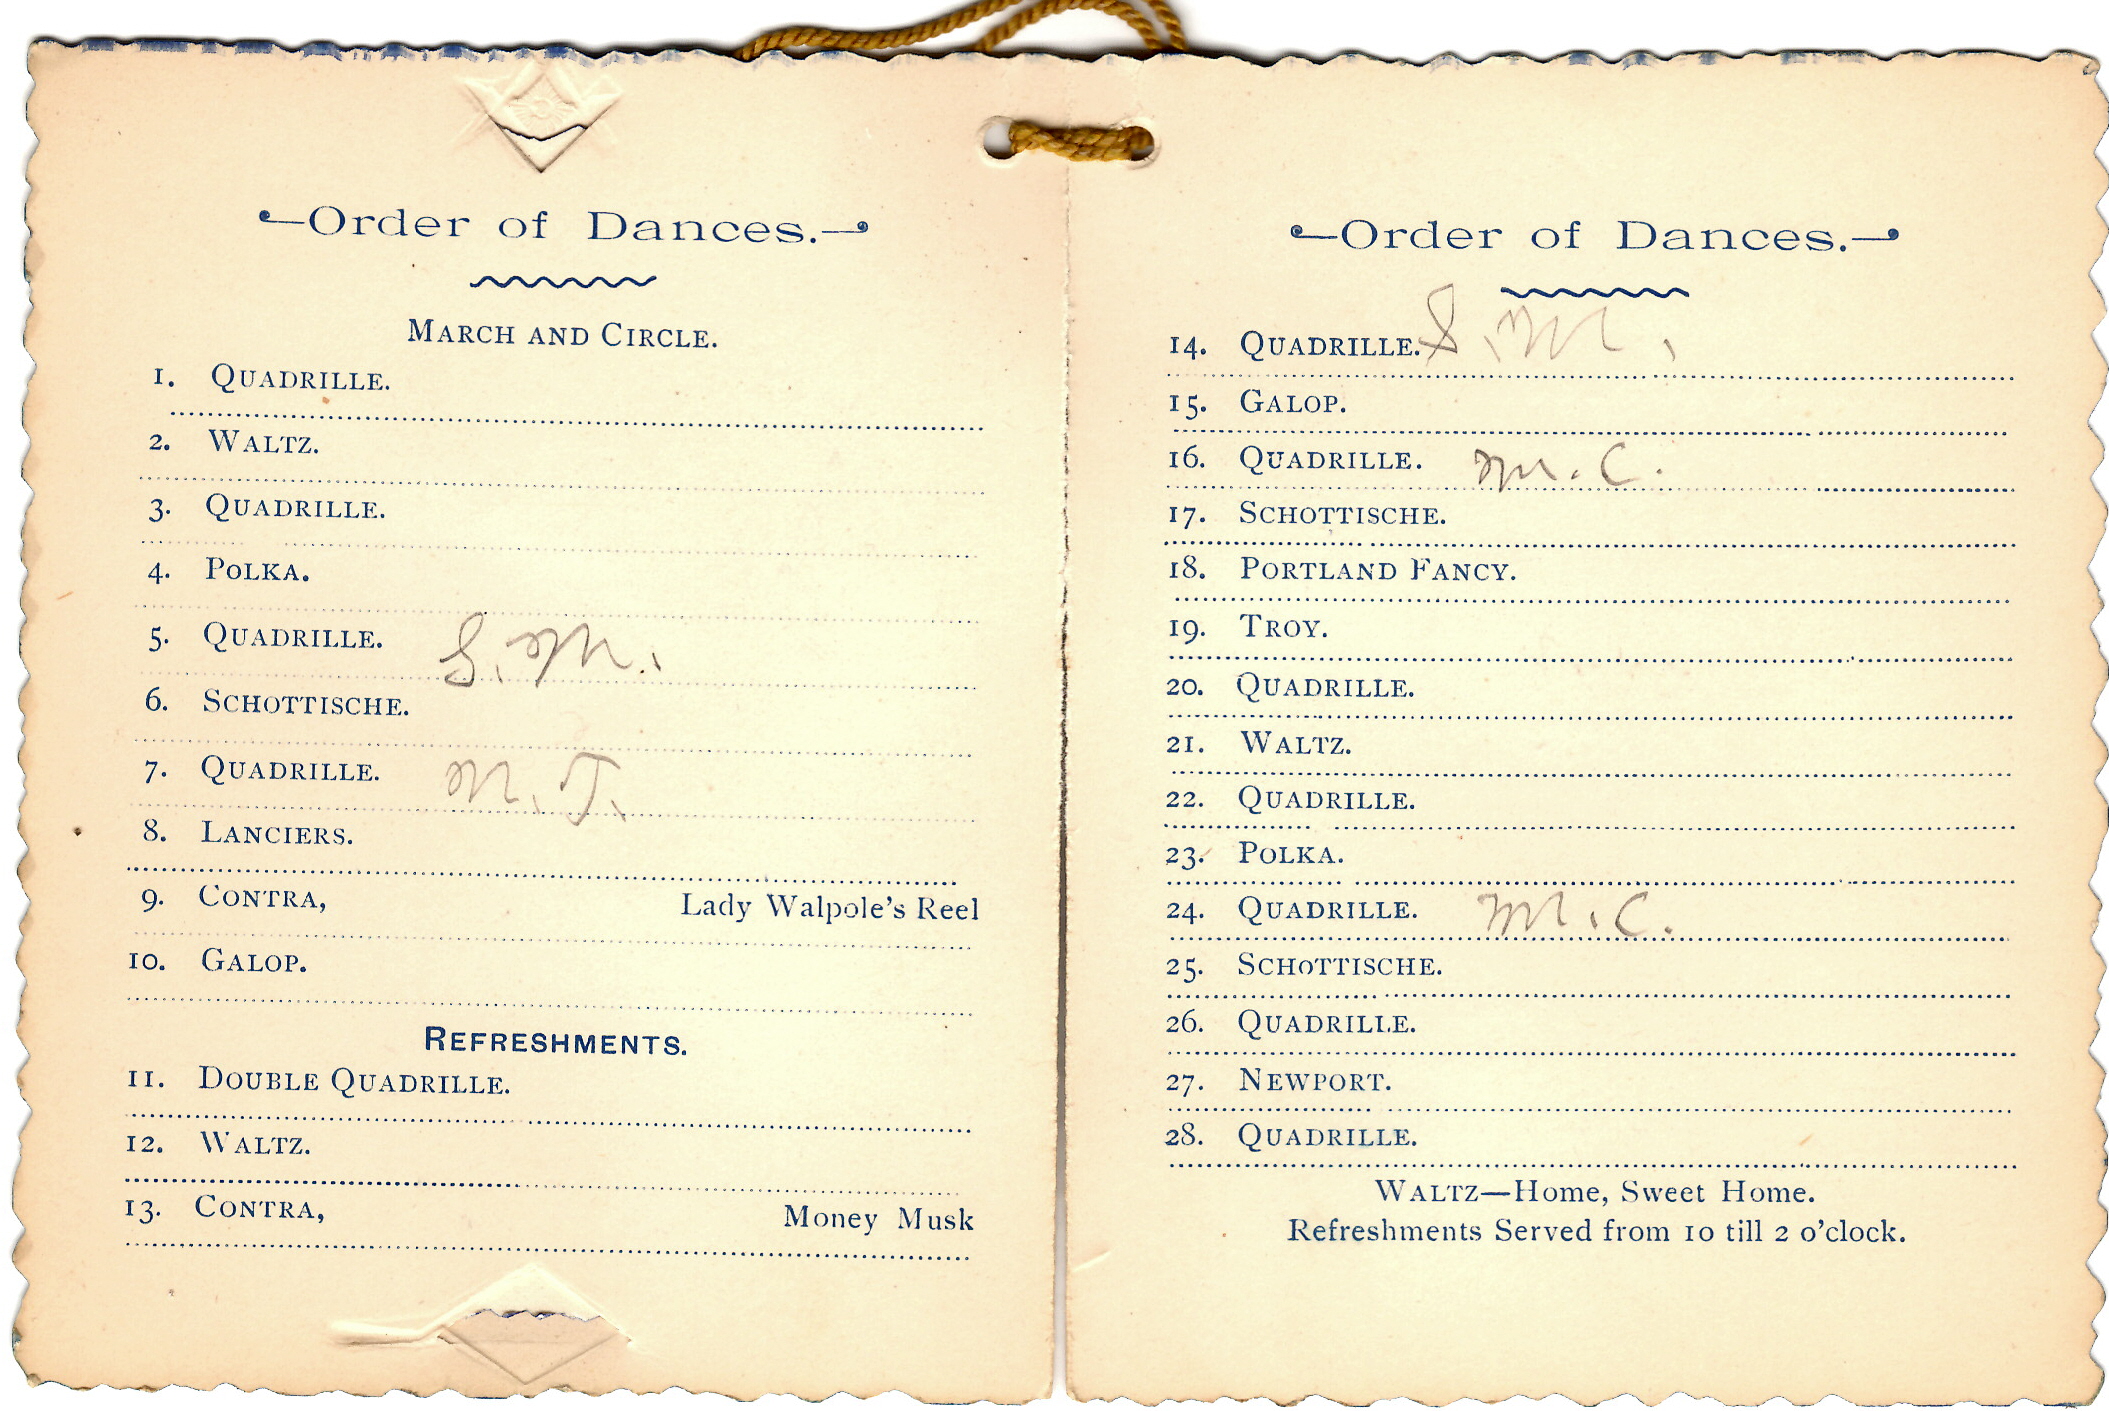 Order of Dances.
MARCH AND CIRCLE.
1. QUADRILLE.
2. WALTZ.
3. QUADRILLE.
4. POLKA.
5. QUADRILLE.
6. SCHOTTISCHE.
7. QUADRILLE.
8. LANCIERS.
9. CONTRA, Lady Walpole's Reel
10. GALOP.
REFRESHMENTS.
11. DOUBLE QUADRILLE.
12. WALTZ.
13. CONTRA, Money Musk
Order of Dances.
14. QUADRILLE. S. M.
15. GALOP.
16. QUADRILLE. M. C.
17. SCHOTTISCHE.
18. PORTLAND FANCY.
19. TROY.
20. QUADRILLE.
21. WALTZ.
22. QUADRILLE.
23. POLKA.
24. QUADRILLE. M. C.
25. SCHOTTISCHE.
26. QUADRILLE.
27. NEWPORT.
28. QUADRILLE.
WALTZ—Home, Sweet Home.
Refreshments Served from 10 till 2 o'clock.